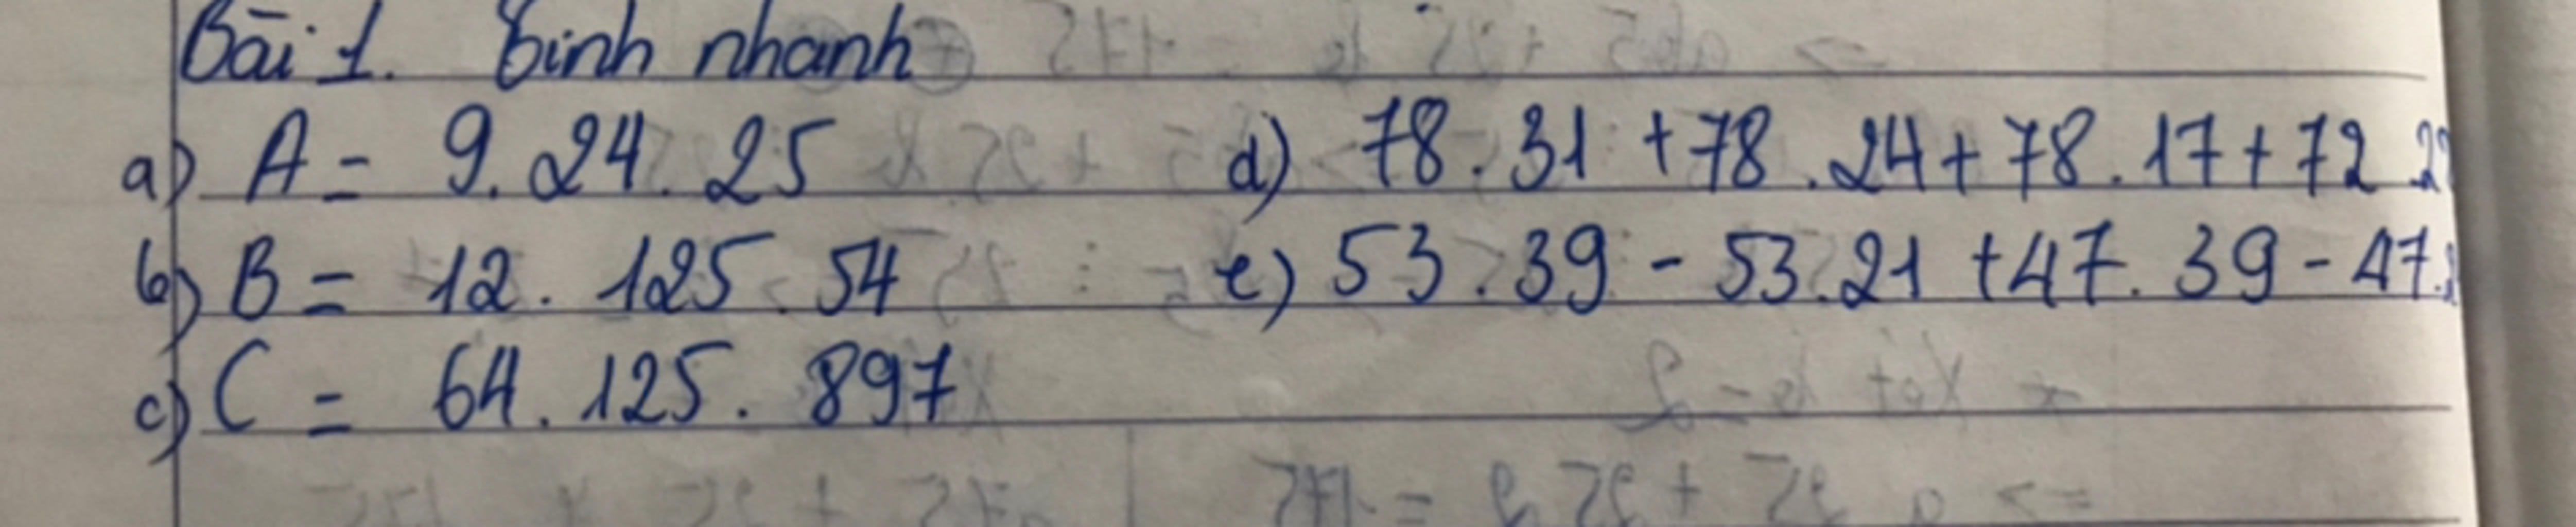 Bài 1. Tính nhanh
a) A = 9.24.25
b) B = 12.125.54
c) C = 64.125.897
d) 78.31 + 78.24 + 78.17 + 72.22
e) 53.39 - 53.21 + 47.39 - 47.